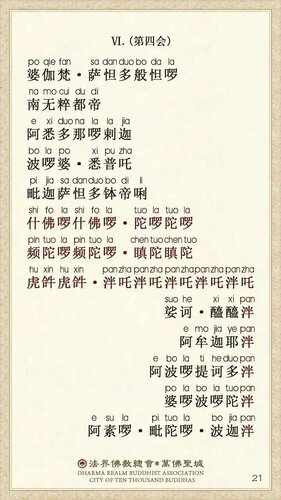 VI. (第四会)
po qie fan sa dan duo bo da la
婆伽梵·萨怛多般怛啰
na mo cui du di
南无粹都帝
e xi duo na la la jia
阿悉多那啰剌迦
bo la po xi pu zha
波啰婆·悉普吒
pi jia sa dan duo bo di li
毗迦萨怛多钵帝唎
shi fo la shi fo la tuo la tuo la
什佛啰什佛啰·陀啰陀啰
pin tuo la pin tuo la chen tuo chen tuo
频陀啰频陀啰·瞋陀瞋陀
hu xin hu xin pan zha pan zha pan zha pan zha pan zha
虎𤙖虎𤙖·泮吒泮吒泮吒泮吒泮吒
suo he xi xi pan
娑诃·醯醯泮
e mo jia ye pan
阿牟迦耶泮
e bo la ti he duo pan
阿波啰提诃多泮
po la bo la tuo pan
婆啰波啰陀泮
e su la pi tuo la bo jia pan
阿素啰·毗陀啰·波迦泮
法界佛教總會·萬佛聖城
DHARMA REALM BUDDHIST ASSOCIATION
CITY OF TEN THOUSAND BUDDHAS
21